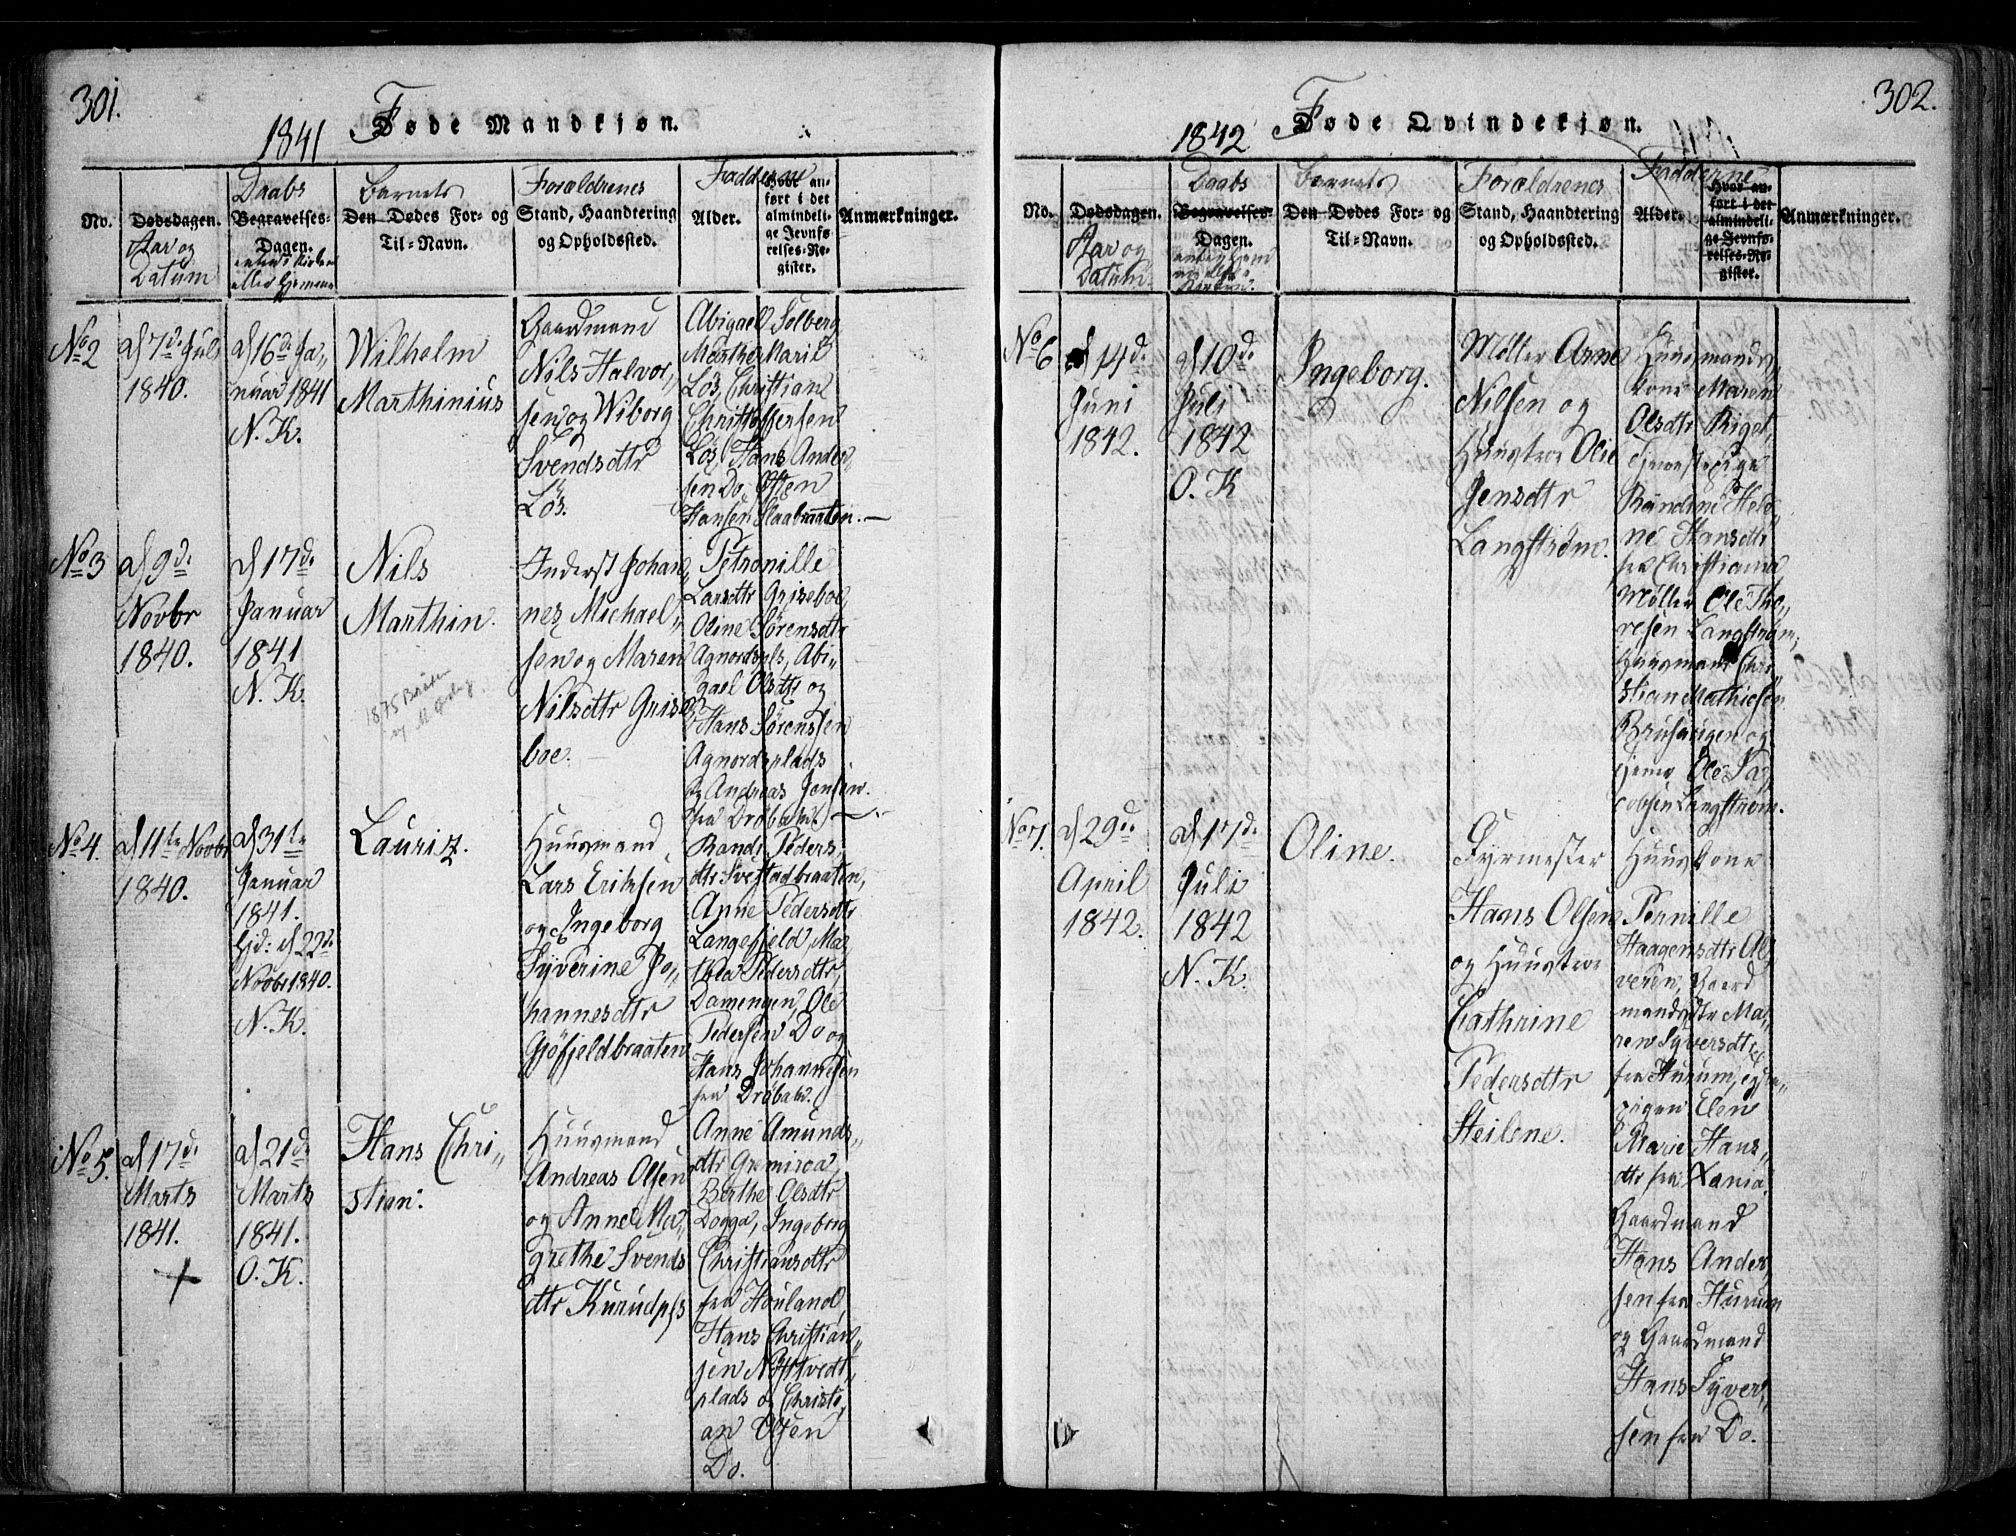 301.
1841
Føde Mandkjøn.
No.
Dødsdagen.
Aar og
Datum
Daabs
Begravelses-
Dagen.
Barnets
Den Dødes For- og
Til-Navn.
Forældrenes
Stand, Haandtering
og Opholdssted.
Fadderne
Alder.
Hvor an-
ført i det
almindeli-
ge Jevnfø-
relses-Re-
gister.
Anmærkninger.
No 2
d 7de Juli
1840.
d 16de Ja-
nuar 1841
N. K.
Wilhelm
Marthinius
Gaardmand
Nils Halvor,,
sen og Wiborg
Svendsdtr
Løs.
Abigael Solberg
Marthe Marie
Løs, Christian
Christoffersen
Løs, Hans Ander,
sen Do,
Hansen Slaabraaten.—
No 3
d 9de
Novbr
1840.
d 17de
Januar
1841
N. K.
Nils
Marthin.
1875
Inderst Johan,,
nes Michael,,
sen og Maren
Nilsdtr Grise
boe.
Petronille
Larsdtr Griseboe,
Oline Sørensdtr
Agnordspls, Abi,,
gael Olsdtr og
Hans Sørensen
Agnordsplads
og Andreas Jensen.
fra Drøbak.
No 4.
d 11te Novbr
1840.
d 31te
Januar
1841.
Hjd: d 22de
Novbr 1840.
N. K.
Lauritz.
Huusmand
Lars Eriksen
og Ingeborg
Syverine Jo,,
hannesdtr
Gjøfjeldbraaten
Randi Peders,
dtr Svestadbraaten,
Anne Pedersdtr
Langefjeld, Ma,
thea Pedersdtr,
Damengen, Ole
Pedersen Do og
Hans Johannesen
fra Drøbak.
No 5.
d 17de
Marts
1841.
d 21de
Marts
1841.
O. K.
Hans Chri,,
stian.
Huusmand
Andreas Olsen
og Anne Ma,,
grethe Svends
dtr Kurudpls
Anne Amunds-
dtr
Berthe Olsdtr
Dogga, Ingeborg
Christiansdtr
fra Houland,
Hans Christian,,
sen Nøstvedt,
plads og Christi,
an Olsen
Do.
302.
1842
Føde Qvindekjøn.
No.
Dødsdagen.
Aar og
Datum
Daabs
Begravelses-
Dagen.
Barnets
Den Dødes For- og
Til-Navn.
Forældrenes
Stand, Haandtering
og Opholdssted.
Fadderne
Alder.
Hvor an-
ført i det
almindeli-
ge Jevnfø-
relses-Re-
gister.
Anmærkninger.
No 6
d 14de
Juni
1842.
d 10de
Juli
1842
O. K
Ingeborg.
Møller Arne
Nilsen og
Huustroe Olie
Jensdtr
Langstrøm.
Huusmands,,
kone Maren
Olsdtr Riget,
Tjenestepige
Randine Hele,,
ne Hansdtr
fra Christiania
Møller Ole Tho,,
resen Langstrøm,
Huusmand Chri
stian Mathiesen
Bruhaugen og
Ole Ja,
cobsen Langstrøm.
No 7.
d 29de
April
1842.
d 17de
Juli
1842
N. K.
Oline.
Fyrmester
Hans Olsen
og Huustroe
Cathrine
Pedersdtr
Steilene.
Huuskone
Pernille
Haagensdtr Al,
veren, Gaard
mandsdtr Ma,,
ren Syversdtr
fra Hurum,
pigen Elen
Marie Hans,,
dtr fra Xania.
Gaardmand
Hans Ander,
sen fra Hurum
og Gaardmand
Hans Syver,,
sen fra Do.